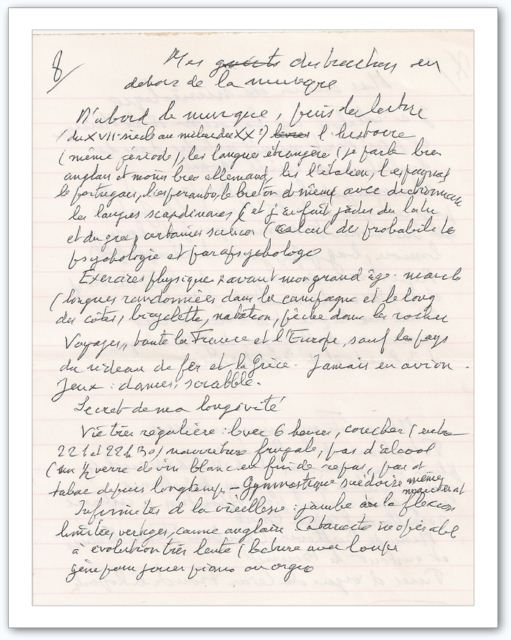 8/ Mes goûts distractions en
dehors de la musique
D'abord la musique, puis la lecture
(du XVIIe siècle au milieu du XXe) livres l'histoire
(même période), les langues étrangère (je parle bien
anglais et moins bien allemand, lis l'italien, l'espagnol
le portugais, l'esperanto, le breton et même avec dictionnaire
les langues scandinaves (et j'ai fait jadis du latin
et du grec, certaines sciences (calcul des probabilités
psychologie et parapsychologie
Exercices physiques avant mon grand âge. marche
(longues randonnées dans la campagne et le long
des côtes, bicyclette, natation, pêche dans les rochers
Voyages, toute la France et l'Europe, sauf les pays
du rideau de fer et la Grèce. Jamais en avion.
Jeux : dames, scrabble.
Secret de ma longévité
Vie très régulière : lever 6 heures, coucher (entre
22 h et 22 h 30) nourriture frugale, pas d'alcool
(un verre de vin blanc en fin de repas, pas de
tabac depuis longtemps - Gymnastique suédoise même
maintenant
Infirmités de la vieillesse : jambe à la flexion
limitée, vertiges, canne anglaise Cataracte inopérable
à évolution très lente (lecture avec loupe
gêne pour jouer piano ou orgue